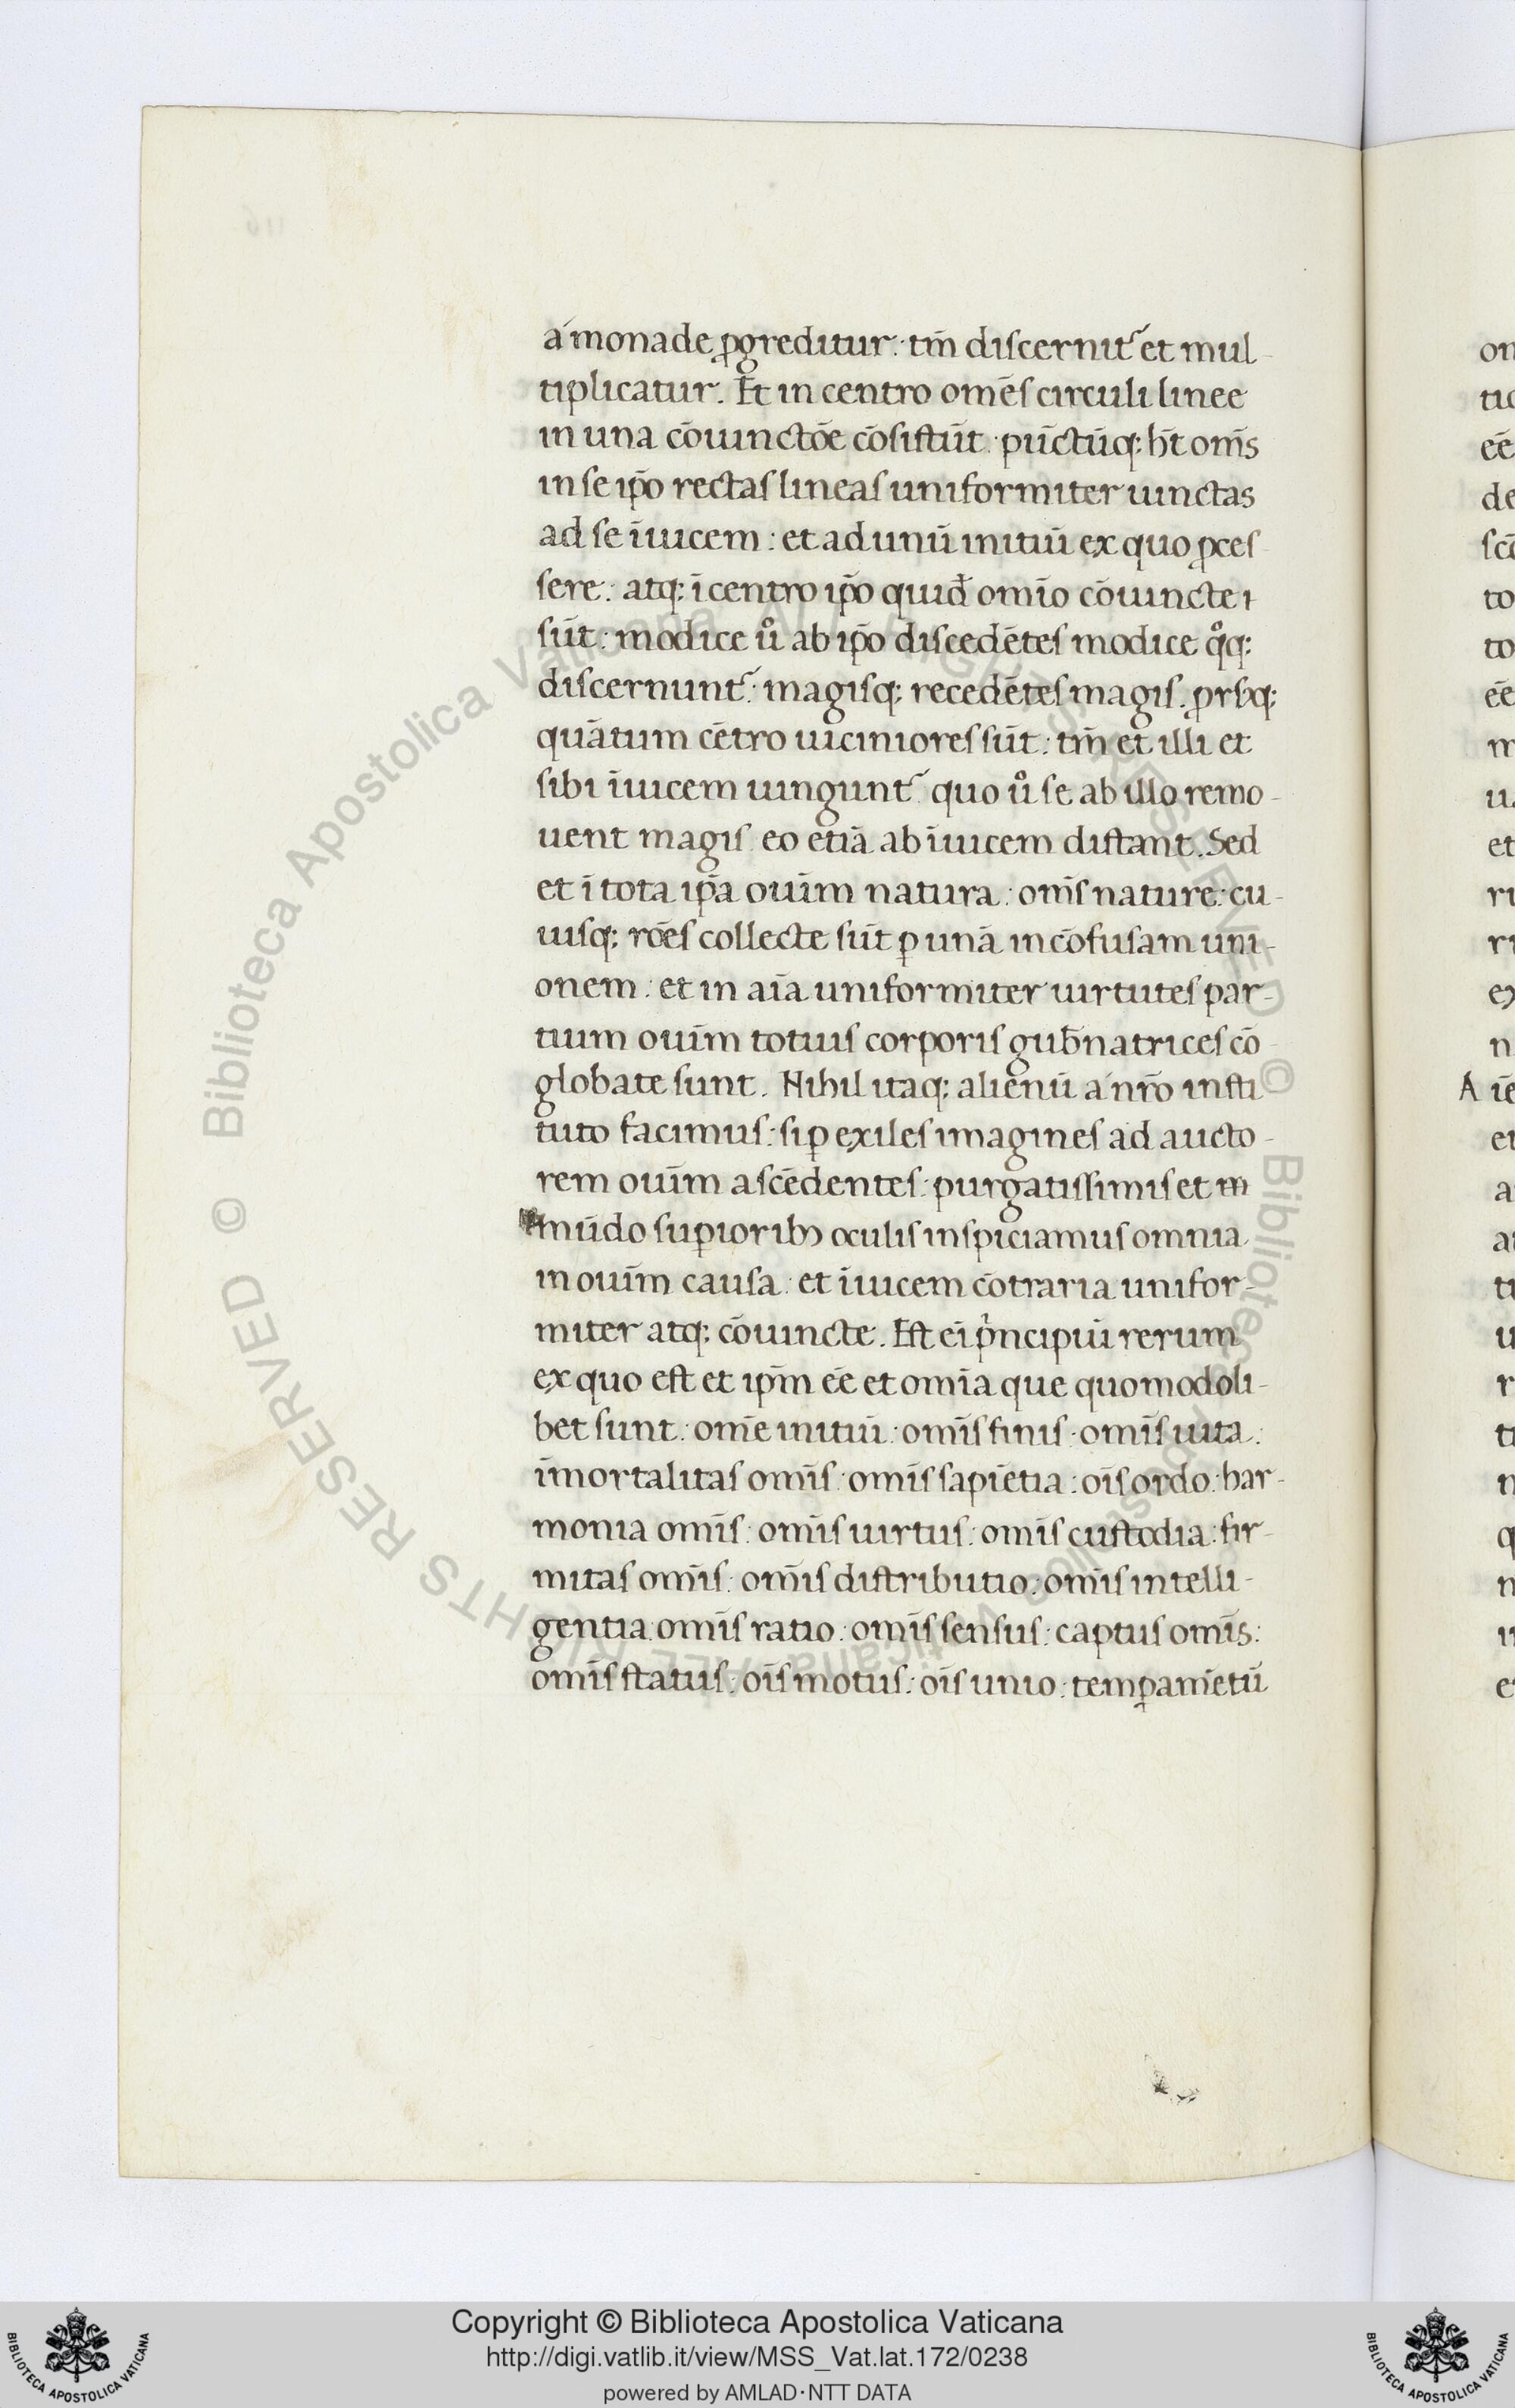 a monade ꝓgreditur: tm̄ discernit᷑ et mul-
tiplicatur. Et in centro omēs circuli linee
in una cōiunctōe cōsistūt. pūctūq; hn̄t om̄s
in se ip̄o rectas lineas uniformiter iunctas
ad se īuicem: et ad unū initiū ex quo ꝓces
sere. atq; ī centro ip̄o quid̄ omīo cōiuncte
sūt: modice uͦ ab ip̄o discedētes modice qͦq;
discernunt᷑: magisq; recedētes magis.
quātum cētro uiciniores sūt: tm̄ et illi et
sibi īuicem iungunt᷑ quo uͦ se ab illo remo-
uent magis eo etiā ab īuicem distant. Sed
et ī tota ip̄a ouīm natura: om̄s nature cu-
iusq; rōes collecte sūt ꝑ unā incōfusam uni-
onem: et in aīa uniformiter uirtutes par-
tium ouīm totius corporis gub̄natrices cō
globate sunt. Nihil itaq; alienū a nr̄o insti
tuto facimus: si ꝑ exiles imagines ad aucto-
rem ouīm ascēdentes: purgatissimis et
mūdo suꝑioribꝰ oculis inspiciamus omnia
in ouīm causa: et īuicem cōtraria unifor-
miter atq; cōiuncte. Est eī pͥncipiū rerum
ex quo est et ip̄m ēē et omīa que quomodoli-
bet sunt: om̄e initiū: omīs finis: omīs uita:
īmortalitas omīs: omīs sapiētia: oīs ordo: har-
monia omīs: omīs uirtus: omīs custodia: fir-
mitas omīs: omīs distributio: omīs intelli-
gentia: omīs ratio: omīs sensus: captus omīs:
omīs status: oīs motus: oīs unio: temꝑamētū
Copyright © Biblioteca Apostolica Vaticana
http://digi.vatlib.it/view/MSS_Vat.lat.172/0238
powered by AMLAD·NTT DATA